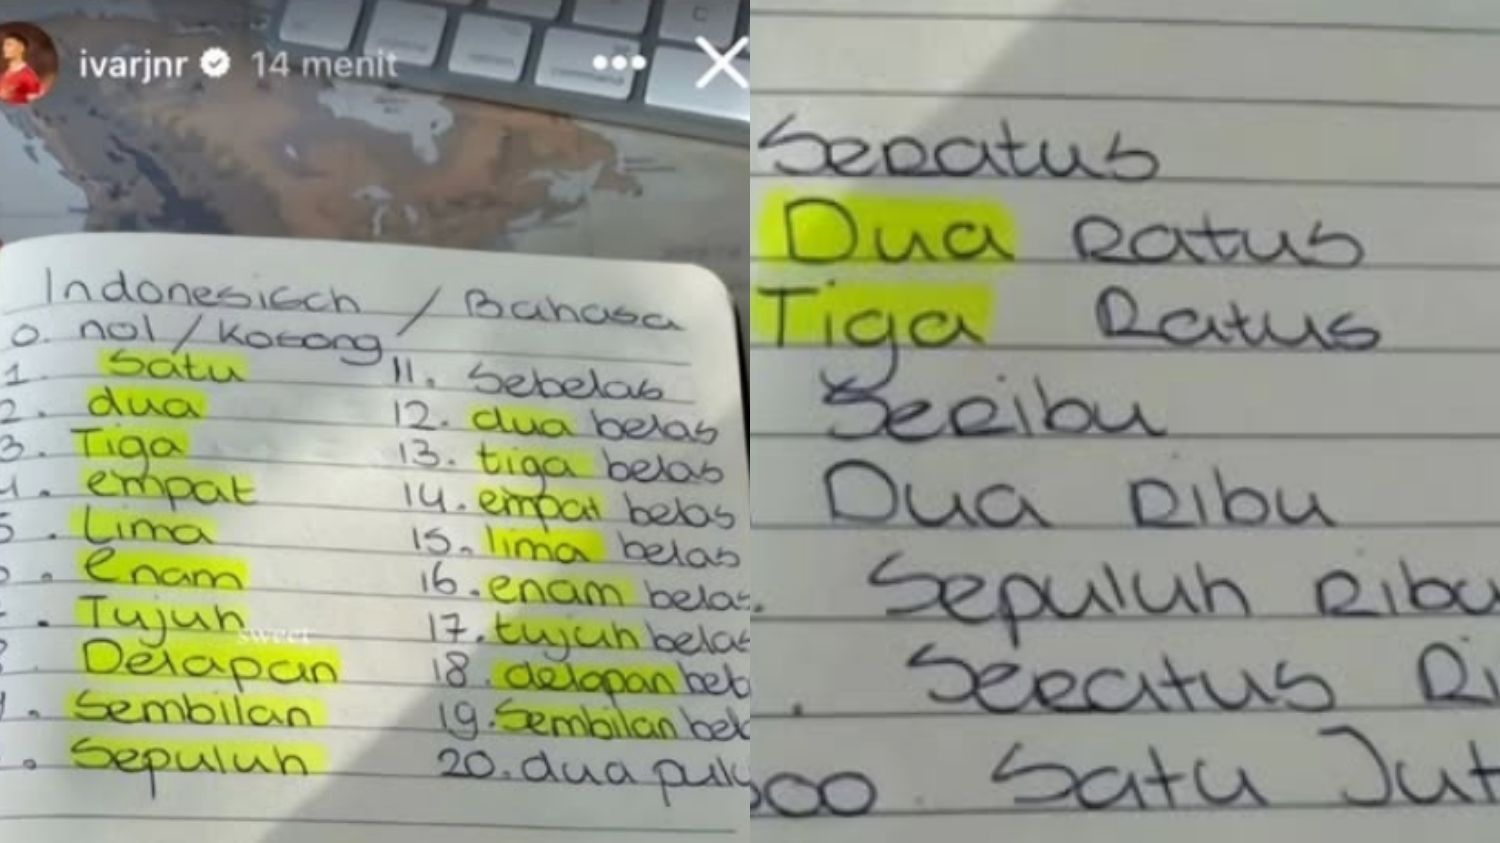 ivarjnr 14 menit
Indonesisch / Bahasa
0. nol / kosong
1. Satu
2. dua
3. Tiga
4. empat
5. Lima
. Enam
. Tujuh
sweet
Delapan
. Sembilan
. Sepuluh
11. Sebelas
12. dua belas
13. tiga belas
14. empat belas
15. lima belas
16. enam belas
17. tujuh belas
18. delapan bel
19. Sembilan bel
20. dua pulu
Seratus
Dua Ratus
Tiga Ratus
Seribu
Dua Ribu
. Sepuluh Ribu
. Seratus Ri
000 Satu Jut